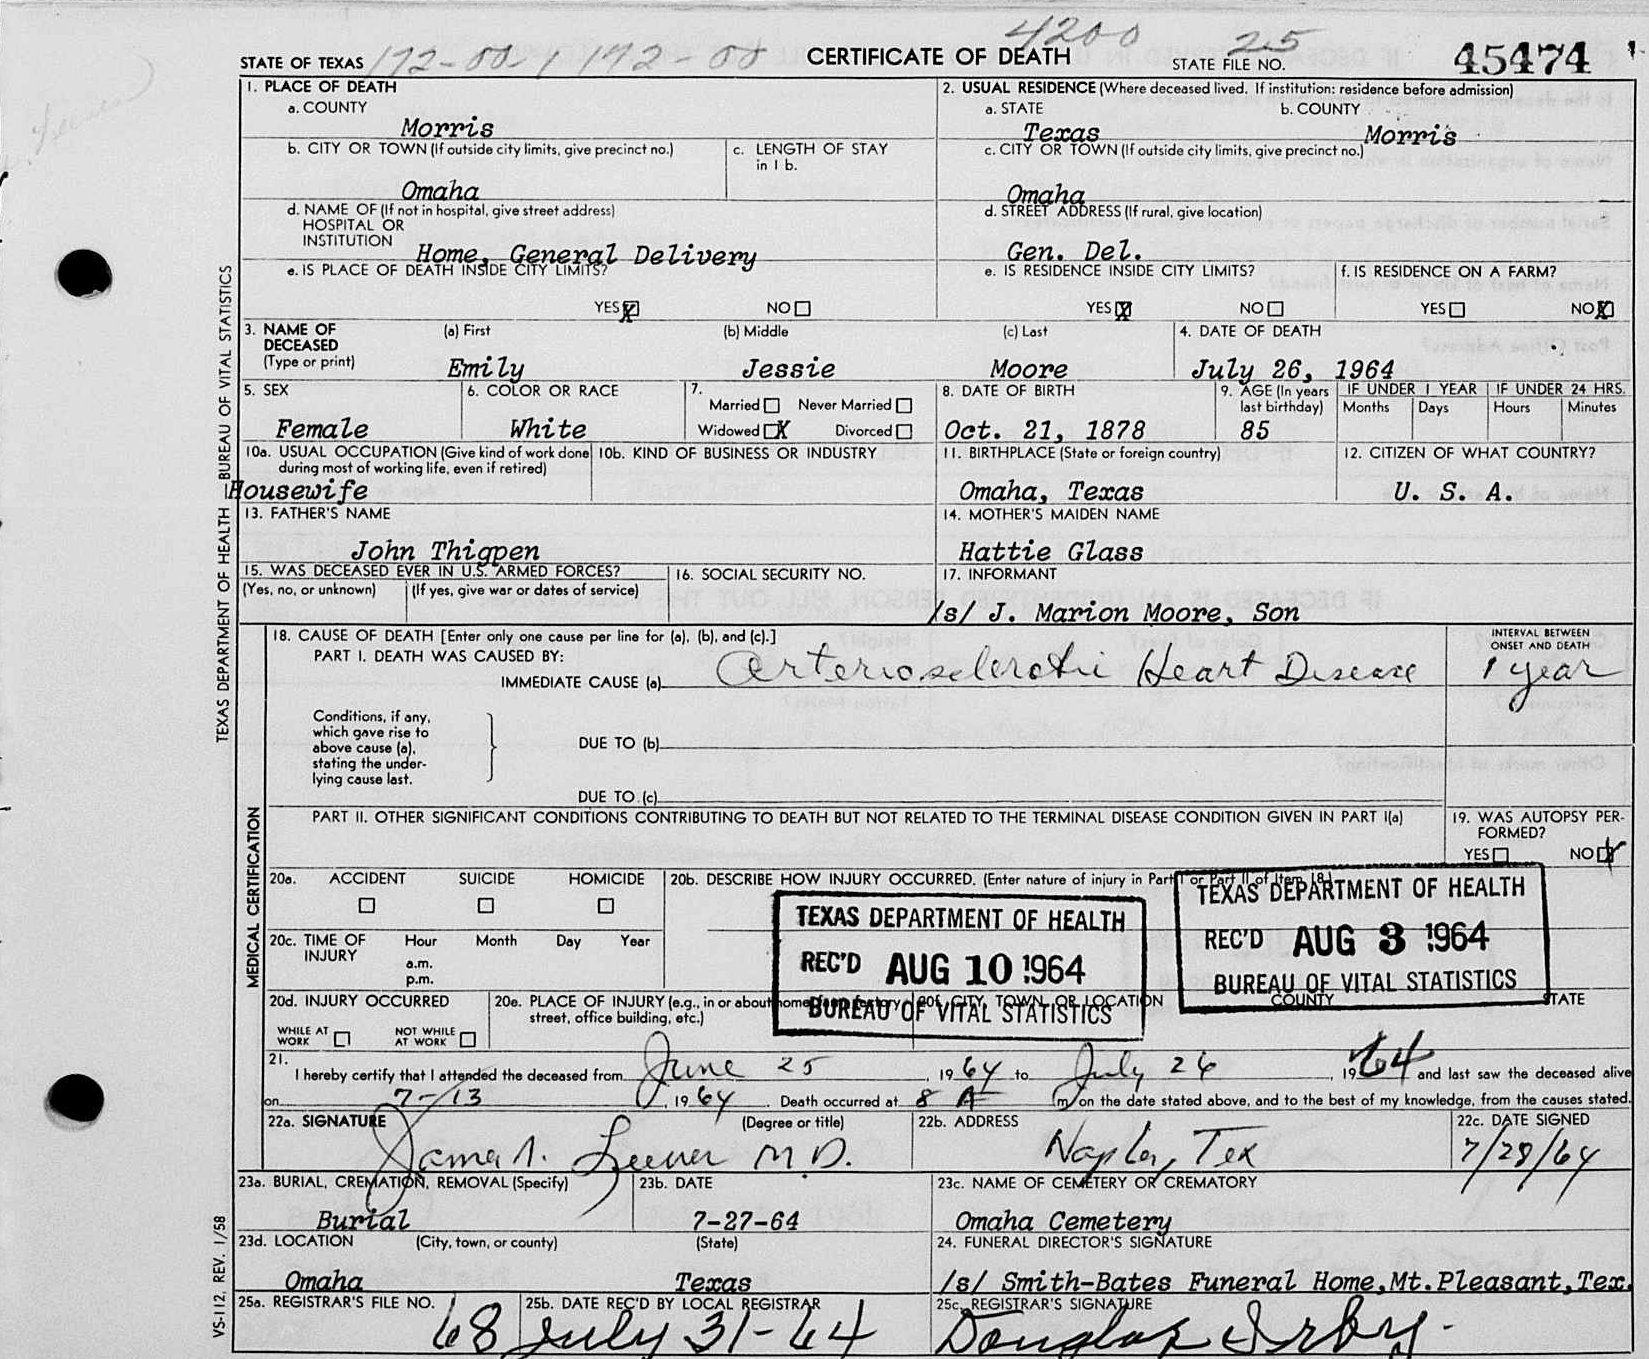 4200
STATE OF TEXAS 172-00-1 172-00 CERTIFICATE OF DEATH STATE FILE NO. 25 45474
1. PLACE OF DEATH
a. COUNTY
Morris
2. USUAL RESIDENCE (Where deceased lived. If institution: residence before admission)
a. STATE b. COUNTY
Texas Morris
b. CITY OR TOWN (If outside city limits, give precinct no.)
Omaha
c. LENGTH OF STAY
in 1 b.
c. CITY OR TOWN (If outside city limits, give precinct no.)
Omaha
d. NAME OF (If not in hospital, give street address)
HOSPITAL OR
INSTITUTION
Home, General Delivery
d. STREET ADDRESS (If rural, give location)
Gen. Del.
e. IS PLACE OF DEATH INSIDE CITY LIMITS?
YES X NO
e. IS RESIDENCE INSIDE CITY LIMITS?
YES X NO
f. IS RESIDENCE ON A FARM?
YES NO X
3. NAME OF
DECEASED
(Type or print)
(a) First (b) Middle (c) Last
Emily Jessie Moore
4. DATE OF DEATH
July 26, 1964
5. SEX
Female
6. COLOR OR RACE
White
7.
Married Never Married
Widowed X Divorced
8. DATE OF BIRTH
Oct. 21, 1878
9. AGE (In years
last birthday)
85
IF UNDER 1 YEAR IF UNDER 24 HRS.
Months Days Hours Minutes
10a. USUAL OCCUPATION (Give kind of work done
during most of working life, even if retired)
Housewife
10b. KIND OF BUSINESS OR INDUSTRY
11. BIRTHPLACE (State or foreign country)
Omaha, Texas
12. CITIZEN OF WHAT COUNTRY?
U. S. A.
13. FATHER'S NAME
John Thigpen
14. MOTHER'S MAIDEN NAME
Hattie Glass
15. WAS DECEASED EVER IN U.S. ARMED FORCES?
(Yes, no, or unknown) (If yes, give war or dates of service)
16. SOCIAL SECURITY NO.
17. INFORMANT
/s/ J. Marion Moore, Son
18. CAUSE OF DEATH [Enter only one cause per line for (a), (b), and (c).]
PART I. DEATH WAS CAUSED BY:
IMMEDIATE CAUSE (a) Arteriosclerotic Heart Disease
INTERVAL BETWEEN
ONSET AND DEATH
1 year
Conditions, if any,
which gave rise to
above cause (a),
stating the under-
lying cause last.
DUE TO (b)
DUE TO (c)
PART II. OTHER SIGNIFICANT CONDITIONS CONTRIBUTING TO DEATH BUT NOT RELATED TO THE TERMINAL DISEASE CONDITION GIVEN IN PART I(a)
19. WAS AUTOPSY PER-
FORMED?
YES NO X
20a. ACCIDENT SUICIDE HOMICIDE
20b. DESCRIBE HOW INJURY OCCURRED. (Enter nature of injury in Part I or Part II of Item 18.)
20c. TIME OF
INJURY
Hour Month Day Year
a.m.
p.m.
TEXAS DEPARTMENT OF HEALTH
REC'D AUG 10 1964
BUREAU OF VITAL STATISTICS
TEXAS DEPARTMENT OF HEALTH
REC'D AUG 3 1964
BUREAU OF VITAL STATISTICS
20d. INJURY OCCURRED
WHILE AT
WORK
NOT WHILE
AT WORK
20e. PLACE OF INJURY (e.g., in or about home, farm, factory,
street, office building, etc.)
20f. CITY, TOWN, OR LOCATION COUNTY STATE
21.
I hereby certify that I attended the deceased from June 25, 1964 to July 26, 1964 and last saw the deceased alive
on 7-13, 1964. Death occurred at 8 A m on the date stated above, and to the best of my knowledge, from the causes stated.
22a. SIGNATURE (Degree or title)
M.D.
22b. ADDRESS
Naples, Tex
22c. DATE SIGNED
7/28/64
23a. BURIAL, CREMATION, REMOVAL (Specify)
Burial
23b. DATE
7-27-64
23c. NAME OF CEMETERY OR CREMATORY
Omaha Cemetery
23d. LOCATION (City, town, or county) (State)
Omaha Texas
24. FUNERAL DIRECTOR'S SIGNATURE
/s/ Smith-Bates Funeral Home, Mt. Pleasant, Tex.
25a. REGISTRAR'S FILE NO.
68
25b. DATE REC'D BY LOCAL REGISTRAR
July 31-64
25c. REGISTRAR'S SIGNATURE
Douglas Irby
TEXAS DEPARTMENT OF HEALTH BUREAU OF VITAL STATISTICS
MEDICAL CERTIFICATION
VS-112, REV. 1/58